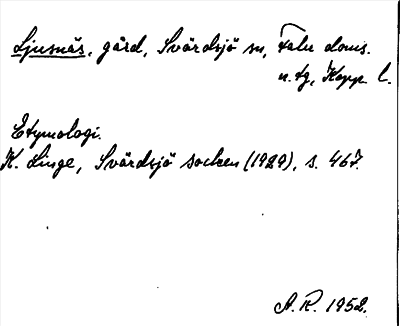 Ljusnäs, gård, Svärdsjö sn, Falu doms.
n. tg, Kopp l.
Etymologi.
K. Linge, Svärdsjö socken (1929), s. 467.
A. R. 1952.